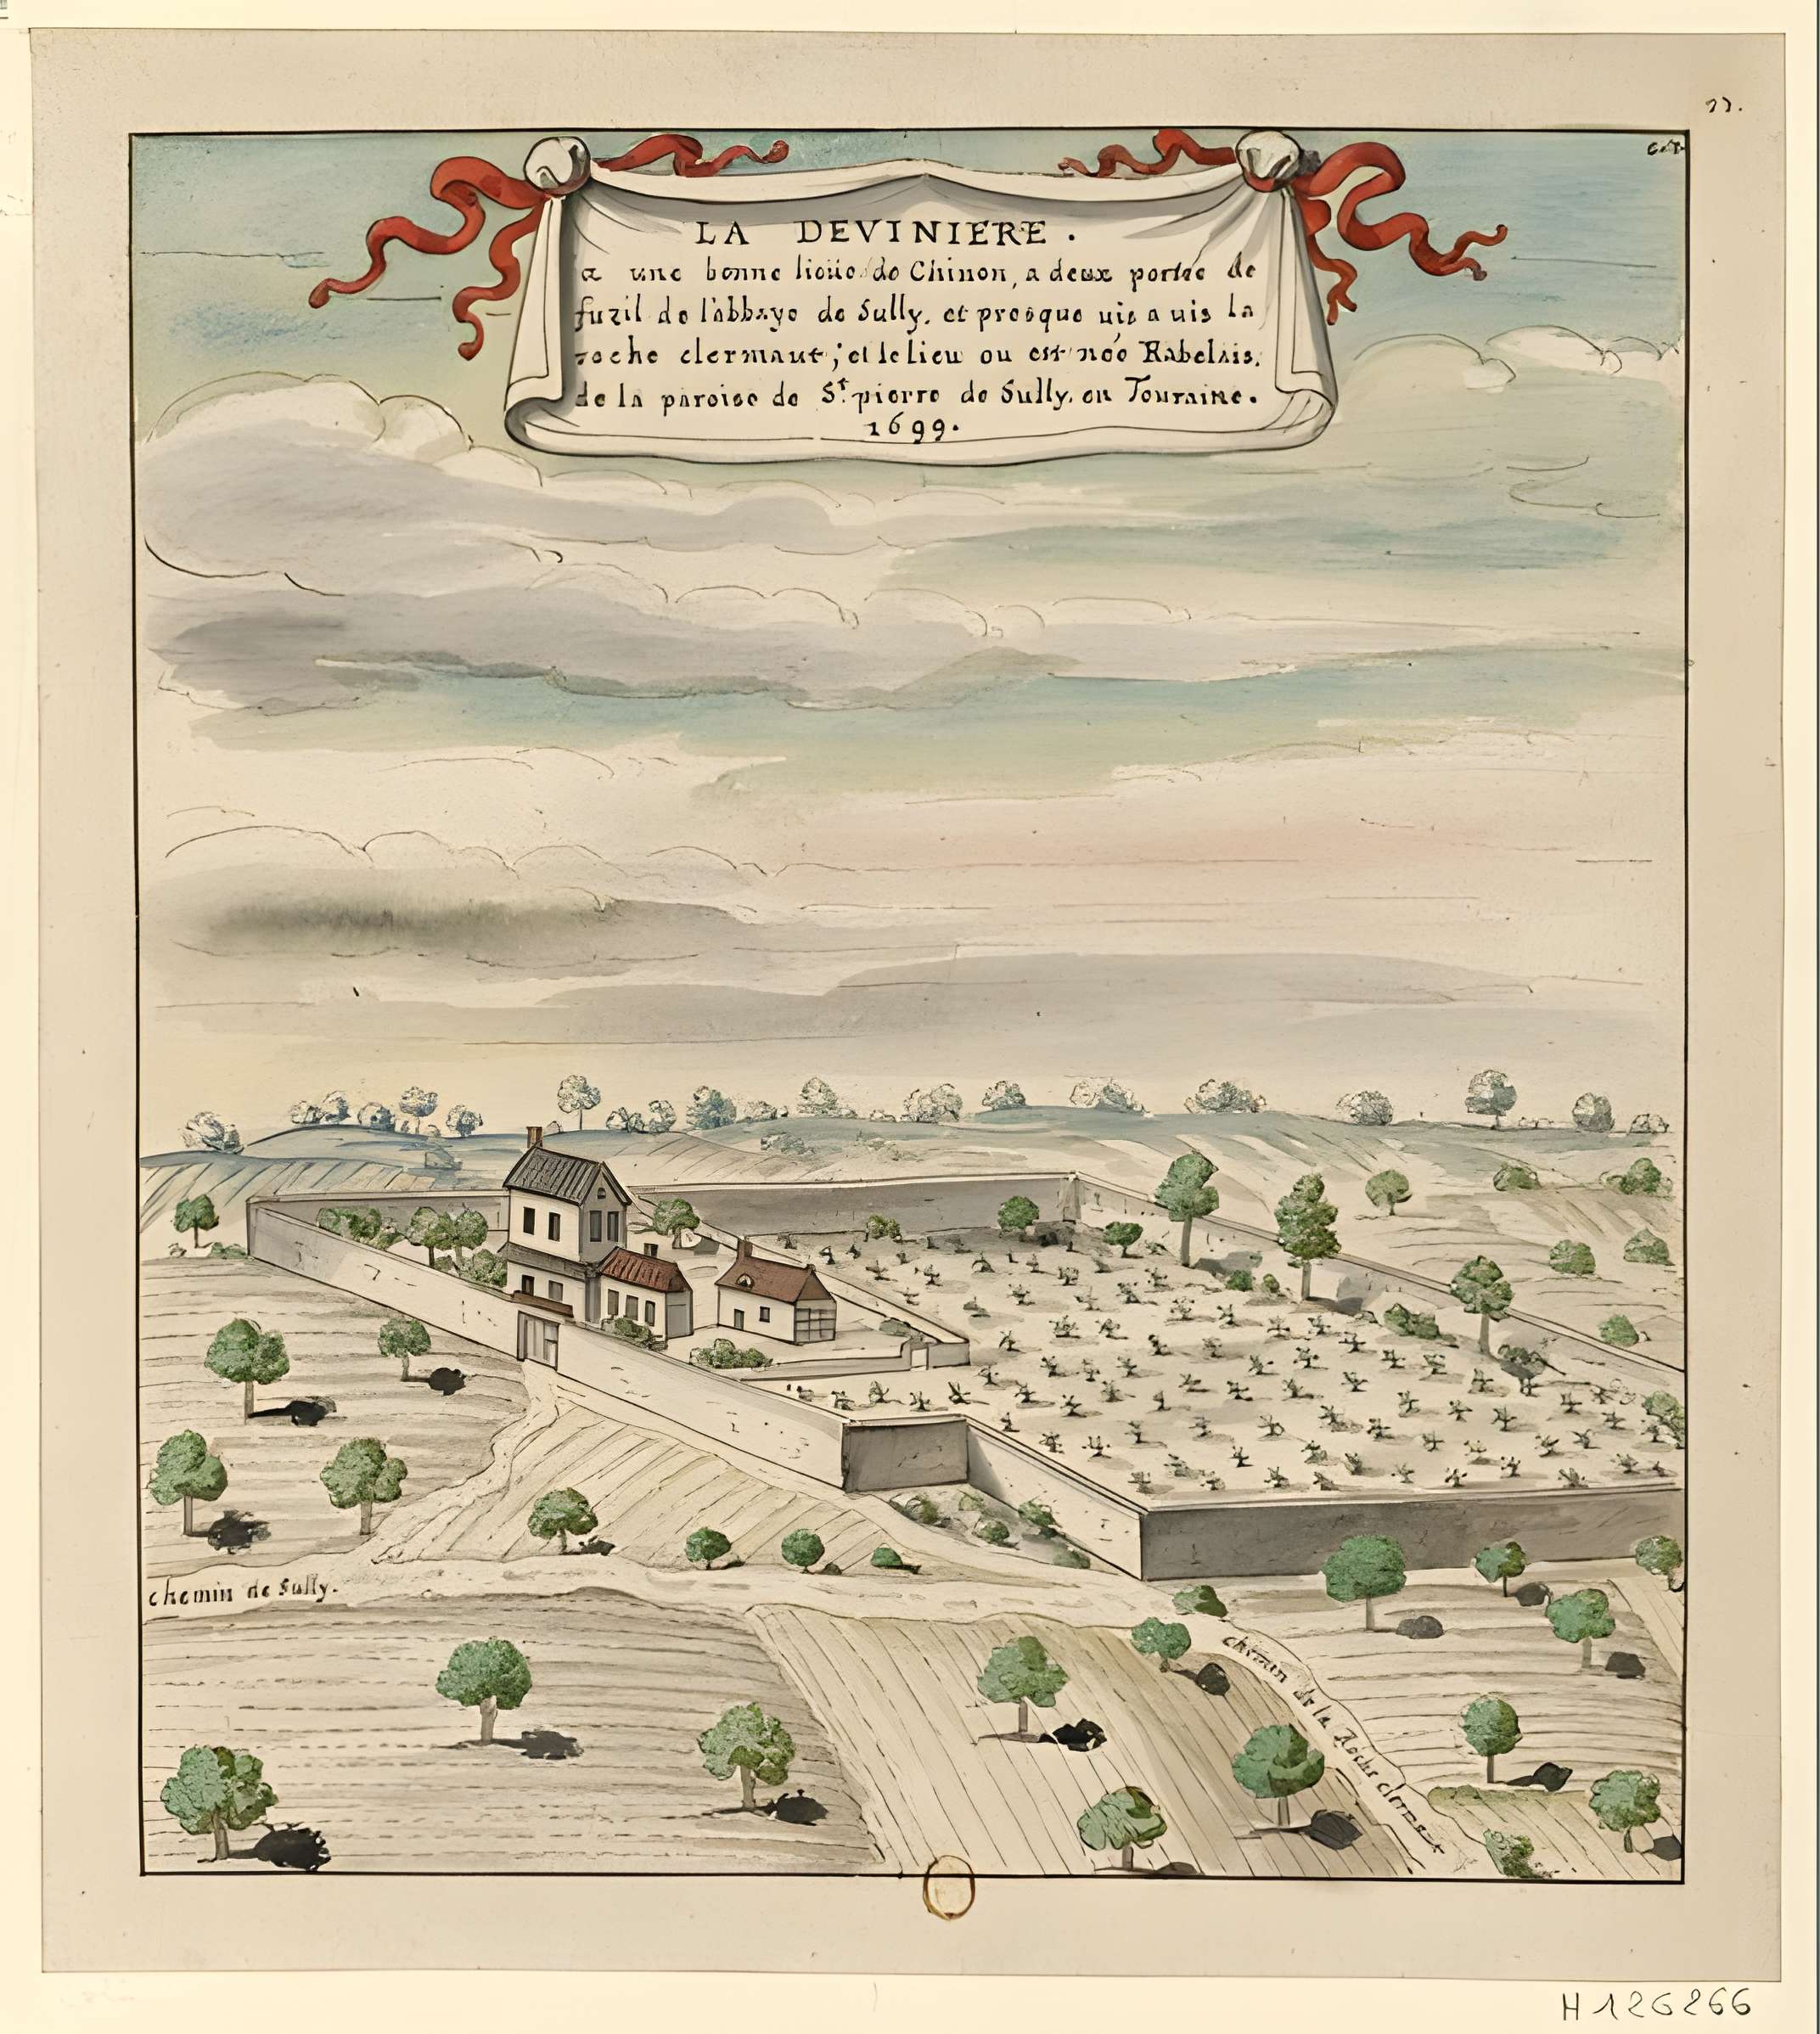 LA DEVINIERE.
a une bonne lieüe de Chinon, a deux portée de
fuzil de l'abbaye de Sully, et presque uis a uis la
roche clermaut; et le lieu ou est née Rabelais,
de la paroise de St. pierre de Sully, en Touraine.
1699.
chemin de Sully.
chemin de la Roche clermaut
H 126266